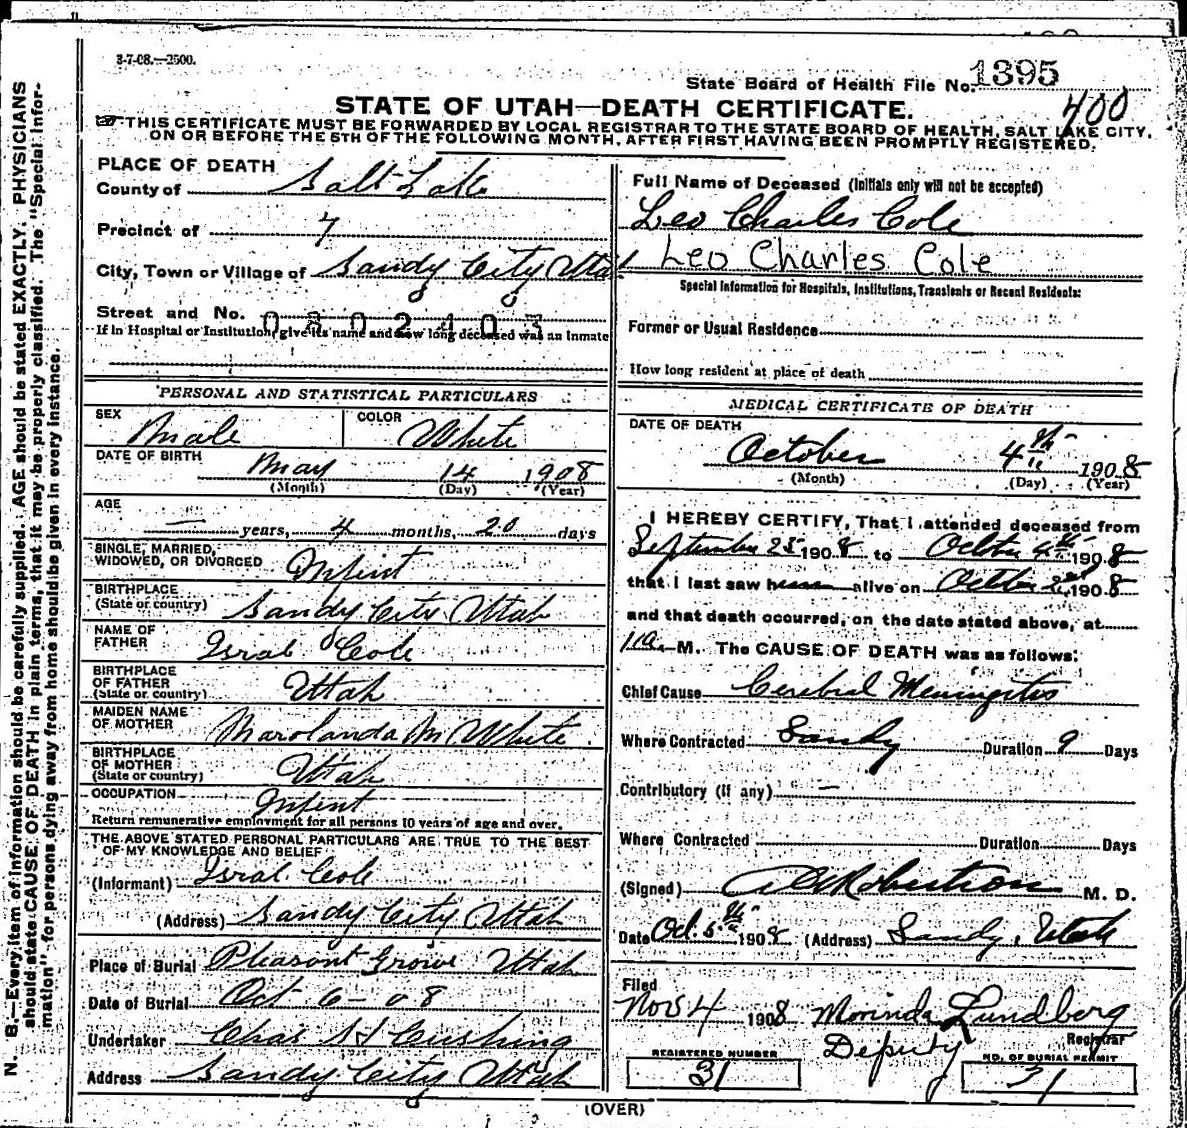 3-7-08.—2500.
State Board of Health File No. 1395
400
STATE OF UTAH—DEATH CERTIFICATE.
THIS CERTIFICATE MUST BE FORWARDED BY LOCAL REGISTRAR TO THE STATE BOARD OF HEALTH, SALT LAKE CITY,
ON OR BEFORE THE 5TH OF THE FOLLOWING MONTH, AFTER FIRST HAVING BEEN PROMPTLY REGISTERED.
PLACE OF DEATH
County of Salt Lake
Precinct of 7
City, Town or Village of Sandy City Utah
Street and No. 0802403
If in Hospital or Institution, give its name and how long deceased was an inmate
PERSONAL AND STATISTICAL PARTICULARS
SEX Male COLOR White
DATE OF BIRTH May 14 1908
(Month) (Day) (Year)
AGE
— years, 4 months, 20 days
SINGLE, MARRIED,
WIDOWED, OR DIVORCED Infint
BIRTHPLACE
(State or country) Sandy City Utah
NAME OF
FATHER Isral Cole
BIRTHPLACE
OF FATHER
(State or country) Utah
MAIDEN NAME
OF MOTHER Marolanda M White
BIRTHPLACE
OF MOTHER
(State or country) Utah
OCCUPATION Infint
Return remunerative employment for all persons 10 years of age and over.
THE ABOVE STATED PERSONAL PARTICULARS ARE TRUE TO THE BEST
OF MY KNOWLEDGE AND BELIEF
(Informant) Isral Cole
(Address) Sandy City Utah
Place of Burial Pleasant Grove Utah
Date of Burial Oct 6-08
Undertaker Chas H Cushing
Address Sandy City Utah
Full Name of Deceased (Initials only will not be accepted)
Leo Charles Cole
Leo Charles Cole
Special Information for Hospitals, Institutions, Transients or Recent Residents:
Former or Usual Residence
How long resident at place of death
MEDICAL CERTIFICATE OF DEATH
DATE OF DEATH
October 4th 1908
(Month) (Day) (Year)
I HEREBY CERTIFY, That I attended deceased from
September 25 1908 to October 4th 1908
that I last saw h alive on October 1908
and that death occurred, on the date stated above, at
M. The CAUSE OF DEATH was as follows:
Chief Cause Cerebral Meningitis
Where Contracted Sandy Duration 9 Days
Contributory (if any) —
Where Contracted Duration Days
(Signed) Robertson M. D.
Date Oct. 5th 1908 (Address) Sandy, Utah
Filed
Nov 4 1908 Morinda Lundberg
Deputy Registrar
REGISTERED NUMBER
31
NO. OF BURIAL PERMIT
31
(OVER)
N. B.—Every item of information should be carefully supplied. AGE should be stated EXACTLY. PHYSICIANS
should state CAUSE OF DEATH in plain terms, that it may be properly classified. The "Special Infor-
mation" for persons dying away from home should be given in every instance.